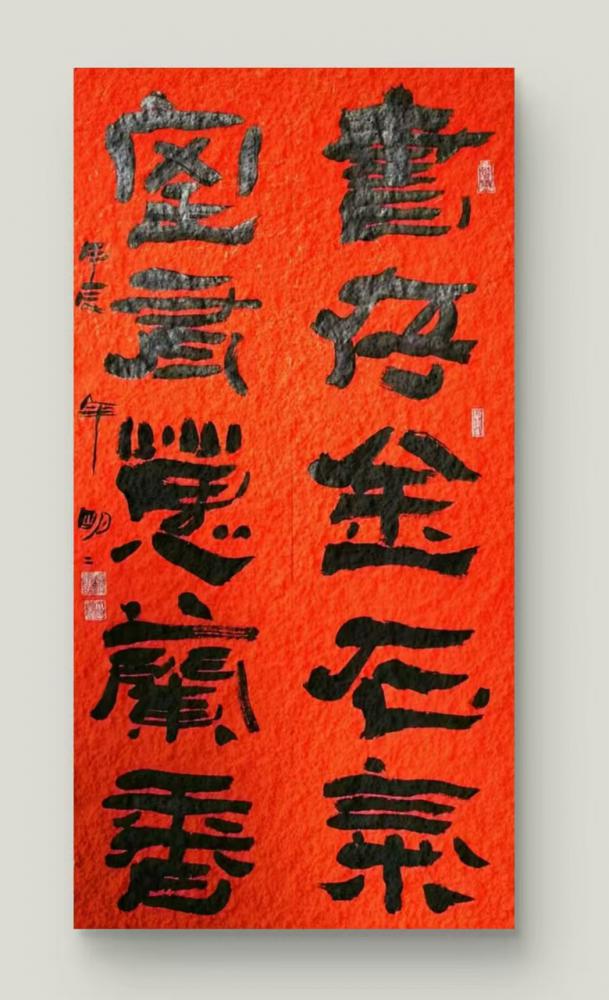 書存金石氣
室有蕙蘭香
辰年明